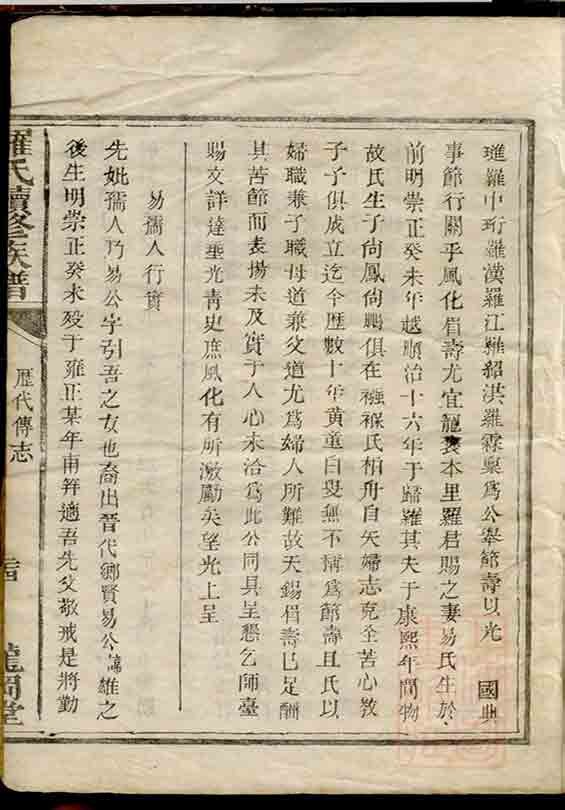 璡羅中珩羅漢羅江羅紹洪羅霖稟為公舉節壽以光　國典
事節行關乎風化眉壽尤宜寵褒本里羅君賜之妻易氏生於
前明崇正癸未年越順治十六年于歸羅其夫于康熙年間物
故氏生子尚鳳尚鵬俱在襁褓氏栢舟自矢婦志克全苦心教
子子俱成立迄今歷數十年黃童白叟無不稱為節壽且氏以
婦職兼子職母道兼父道尤為婦人所難故天錫眉壽已足酬
其苦節而表揚未及實于人心未洽為此公同具呈懇乞師臺
賜文詳達垂光青史庶風化有所激勵矣望光上呈
易孺人行實
先妣孺人乃易公字引吾之女也裔出晉代鄉賢易公諱雄之
後生明崇正癸未歿于雍正某年甫笄適吾先父敬戒是將勤
羅氏續修族譜
歷代傳志
龍岡堂